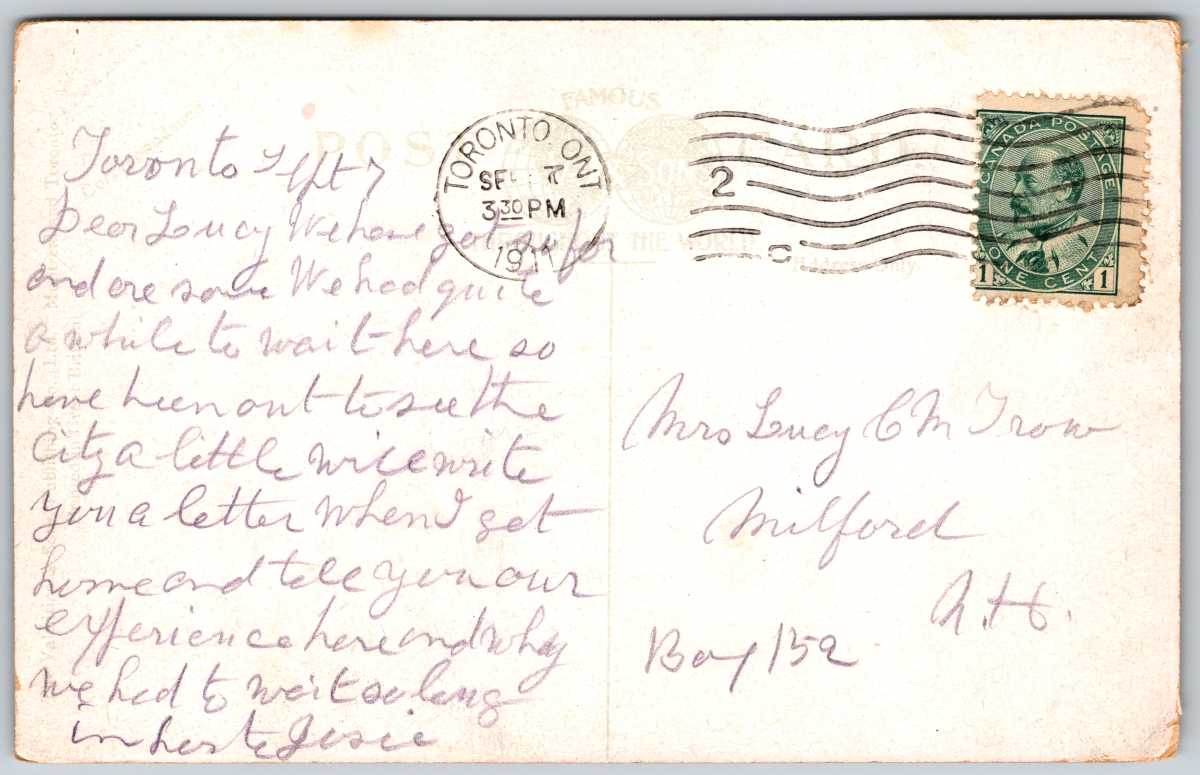 Toronto Sept 7
Dear Lucy We have got so far
and are safe We had quite
a while to wait here so
have been out to see the
City a little will write
you a letter when I get
home and tell you our
experience here and why
we had to wait so long
in haste Jesie
FAMOUS
POST CARDS
TORONTO. ONT
SEP 7
3 30 PM
1911
2
THE WORLD
CANADA POSTAGE
1 ONE CENT 1
Mrs Lucy C M Trow
Milford
N.H.
Box 152